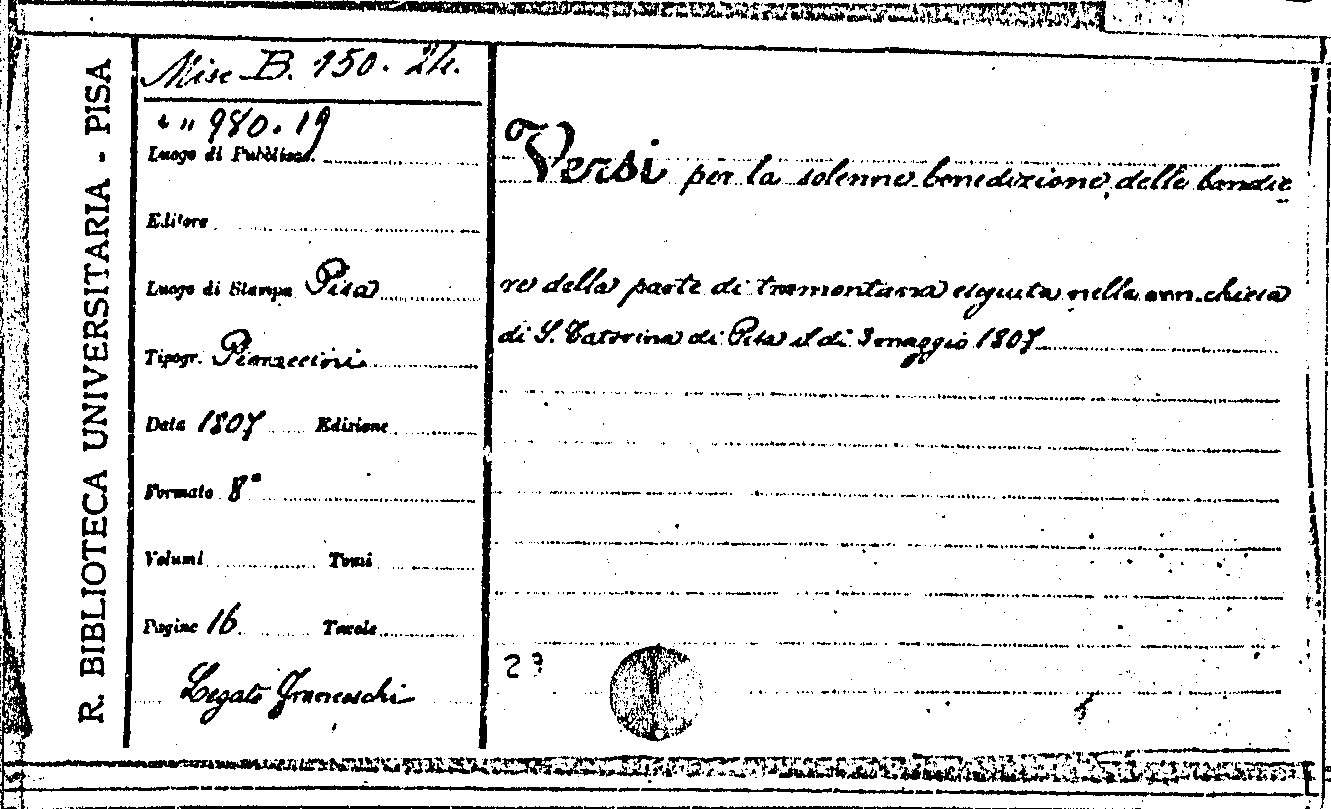 R. BIBLIOTECA UNIVERSITARIA - PISA
Misc B. 150. 24.
" " 980. 19
Luogo di Pubblicaz.
Editore
Luogo di Stampa Pisa
Tipogr. Pieraccini
Data 1807 Edizione
Formato 8°
Volumi Tomi
Pagine 16 Tavole
Legato Franceschi
Versi per la solenne benedizione delle bandie
re della parte di tramontana eseguita nella ven. chiesa
di S. Caterina di Pisa il dì 3 maggio 1807